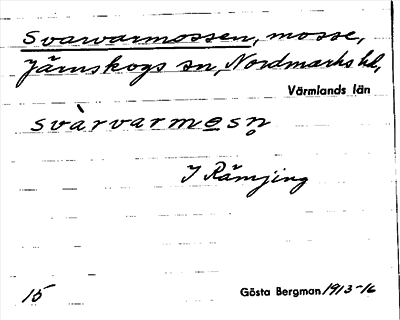 Svarvarmossen, mosse,
Järnskogs sn, Nordmarks hd,
Värmlands län
svàrvarmosn̥
I Rämjing
15 Gösta Bergman 1913-16